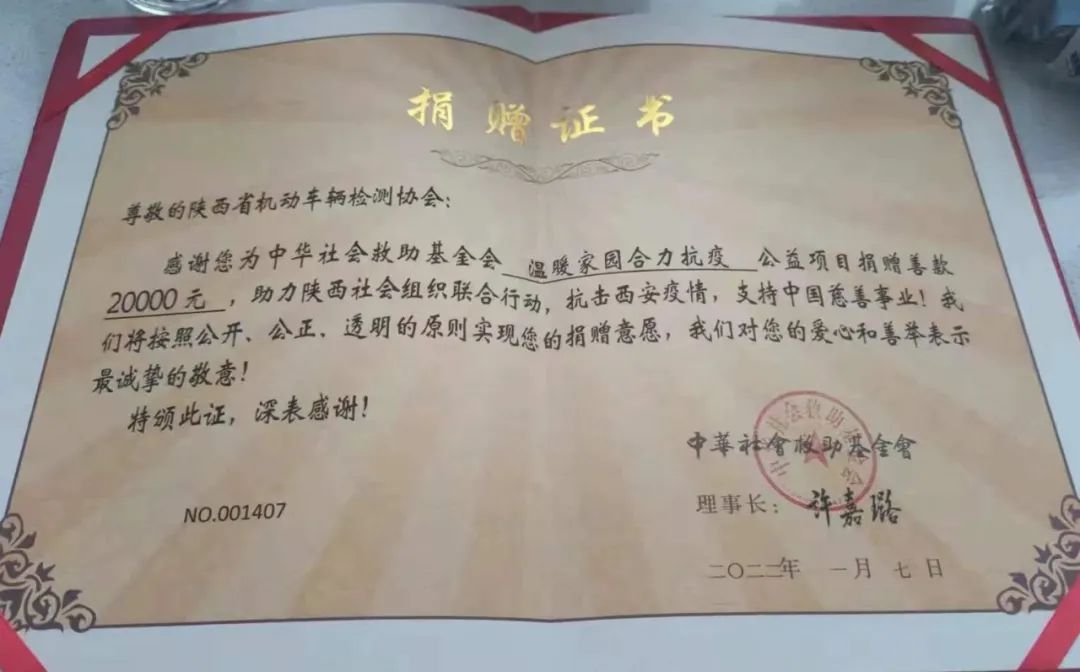 捐赠证书
尊敬的陕西省机动车辆检测协会：
感谢您为中华社会救助基金会 温暖家园合力抗疫 公益项目捐赠善款
20000元 ，助力陕西社会组织联合行动，抗击西安疫情，支持中国慈善事业！我
们将按照公开、公正、透明的原则实现您的捐赠意愿，我们对您的爱心和善举表示
最诚挚的敬意！
特颁此证，深表感谢！
中華社會救助基金會
中华社会救助基金会
NO.001407
理事长：许嘉璐
二〇二二年 一月七日